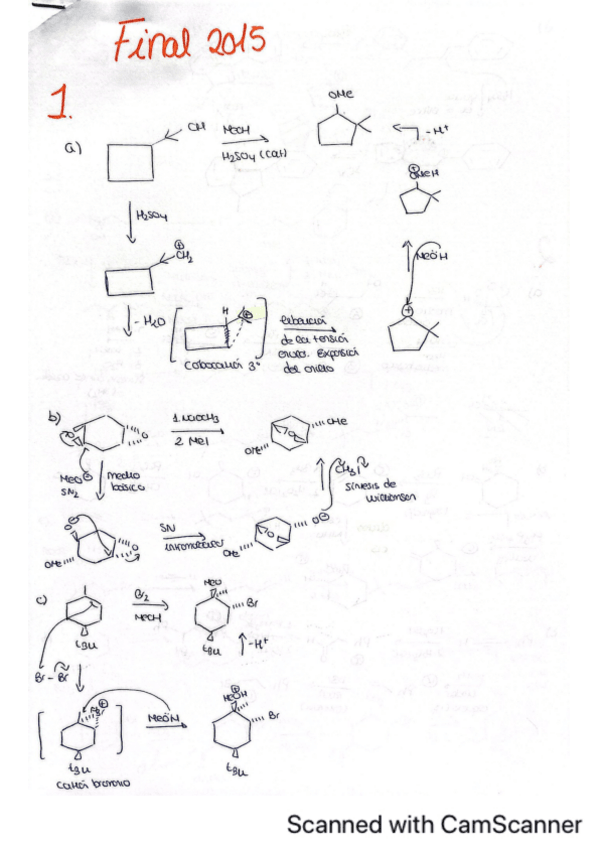 Final 2015
1.
a)
OH
MeOH
H2SO4 (cat)
OMe
-H+
⊕
OMeH
H2SO4
⊕
CH2
MeÖH
- H2O
H
⊕
liberación
de la tensión
Carbocatión 3º
del anillo
b)
1. NaOCH3
2 MeI
OMe
OMe
MeO⊖
SN2
medio
básico
CH3I
síntesis de
Williamson
O⊖
SN
intramolecular
O⊖
OMe
OMe
c)
Br2
MeOH
MeO
Br
tBu
tBu
-H+
Br - Br
Br⊕
MeÖH
⊕
MeOH
Br
tBu
tBu
catión bromonio
Scanned with CamScanner